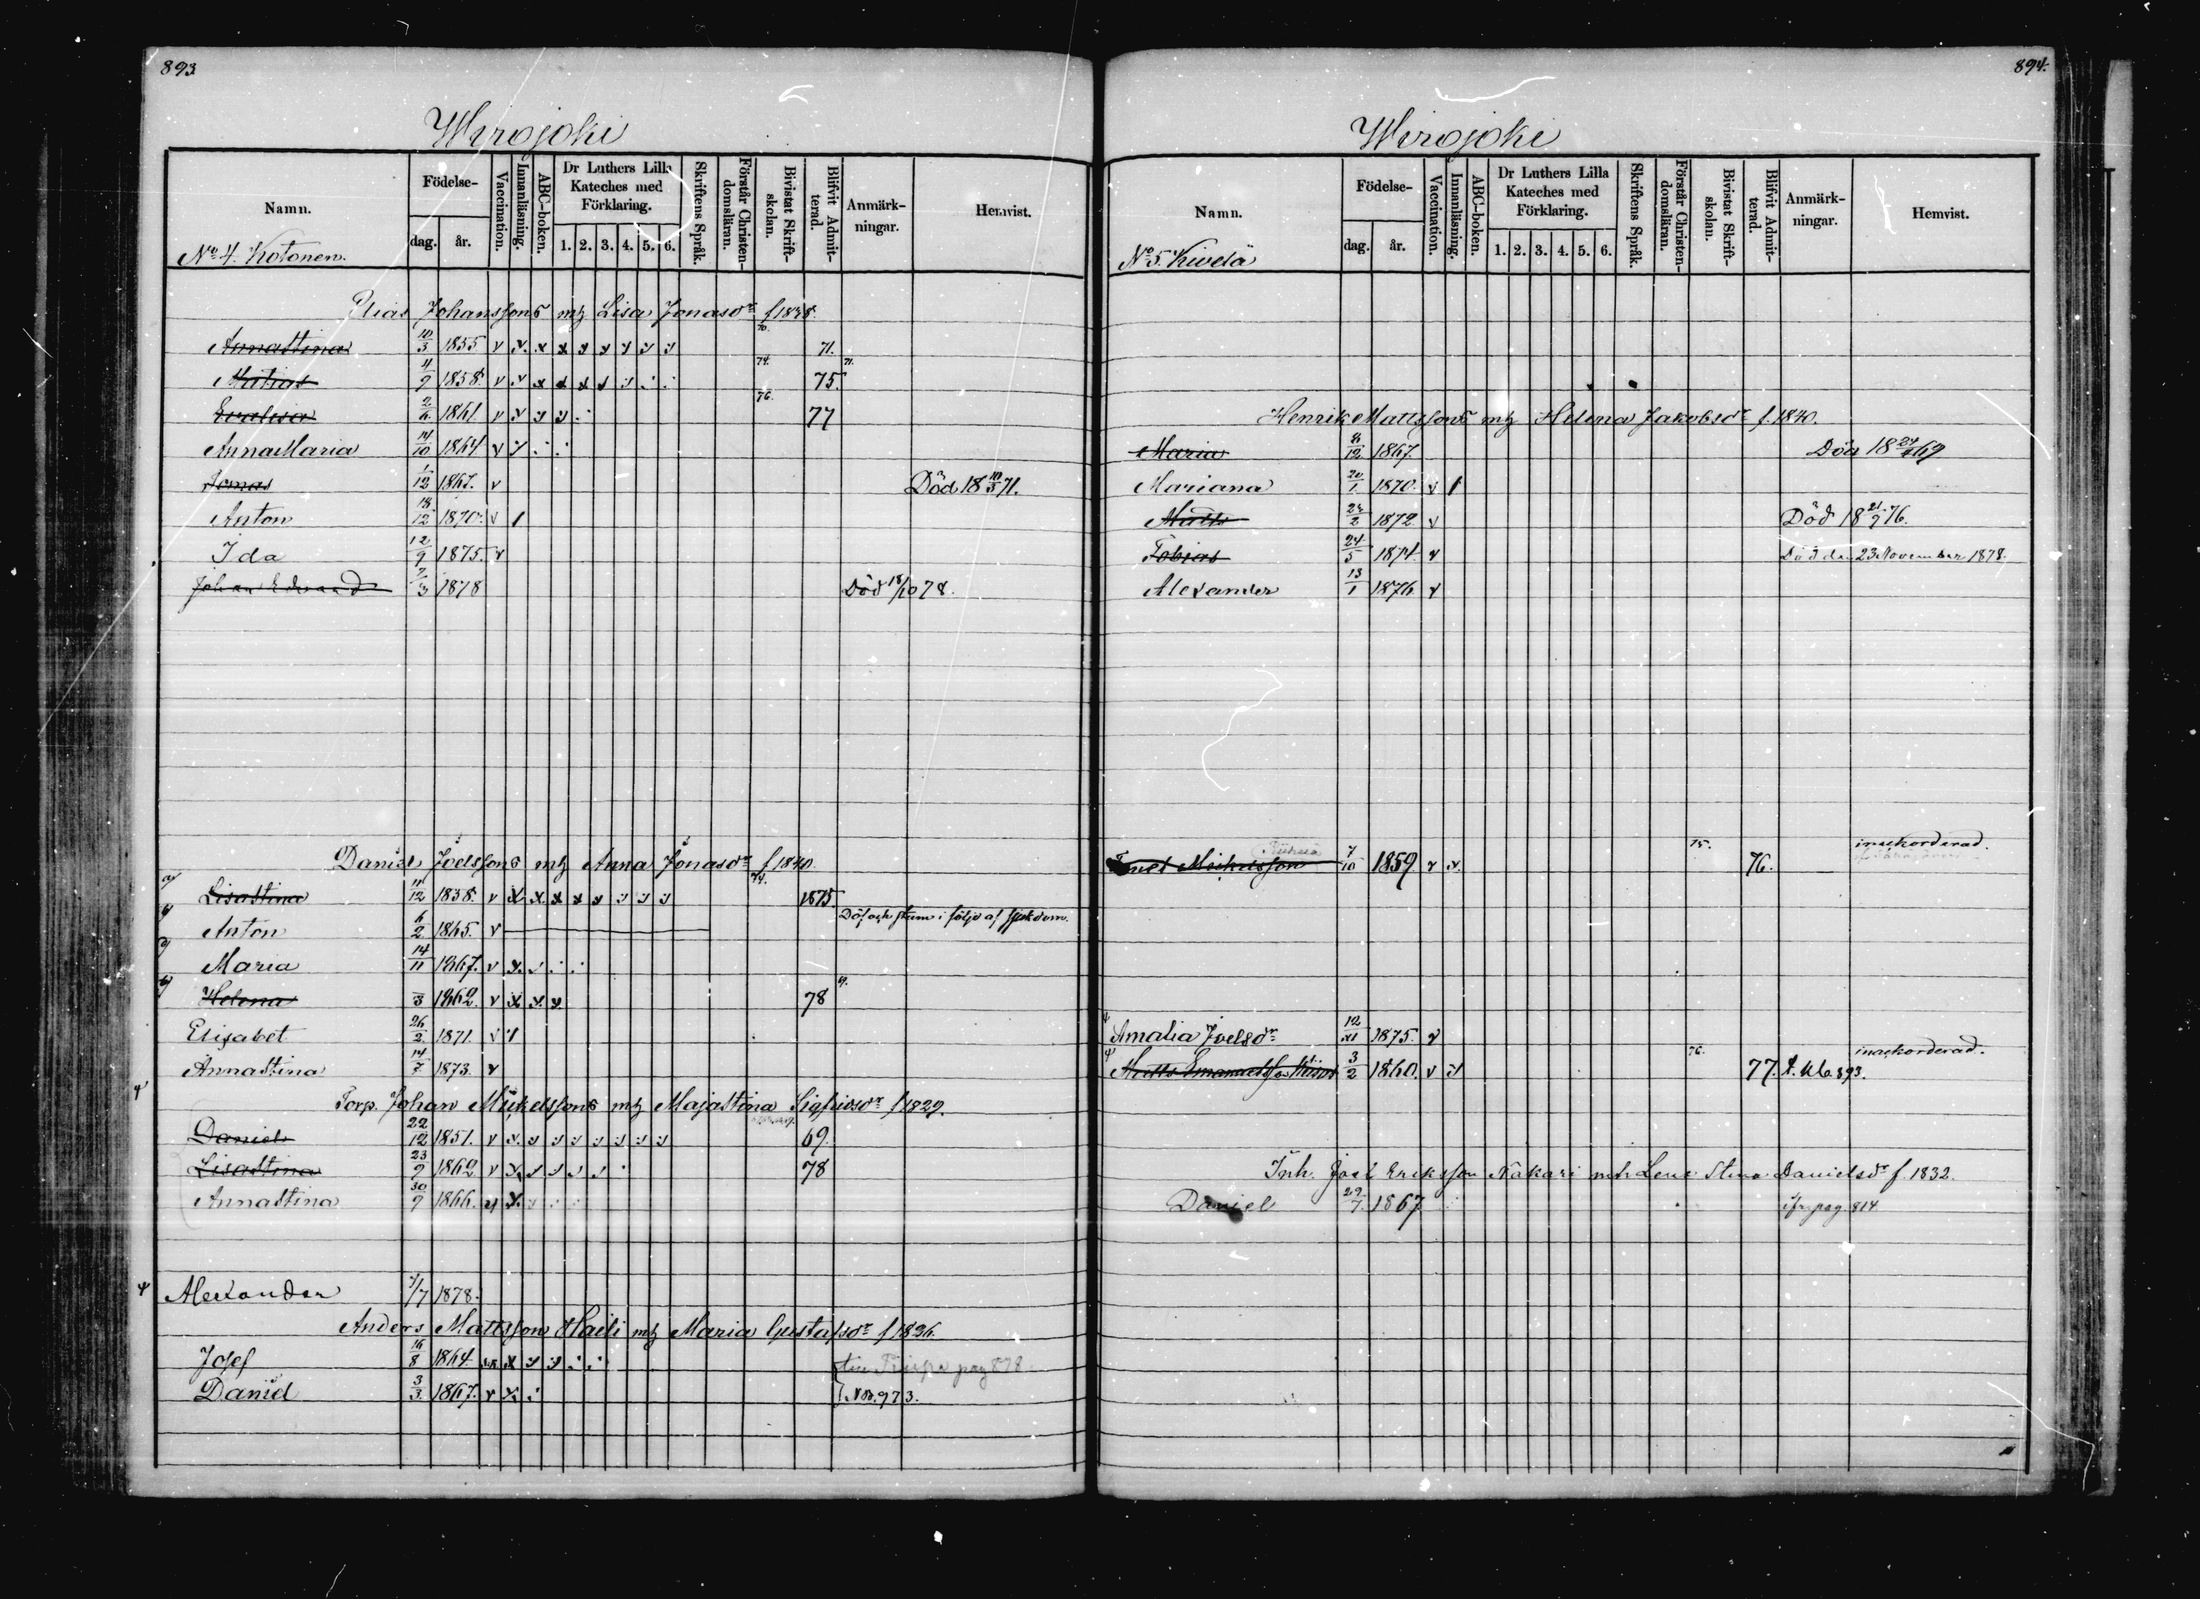 893.
Wirojoki
Namn.
Födelse-
dag. år.
Vaccination.
Innanläsning.
ABC-boken.
Dr Luthers Lilla Kateches med Förklaring.
1. 2. 3. 4. 5. 6.
Skriftens Språk.
Förstår Christen-domsläran.
Bivistat Skrift-skolan.
Blifvit Admit-terad.
Anmärk-ningar.
Hemvist.
No 4. Kotonen.
Elias Johanssons mh Lisa Jonasdr f 1838.
Annastina 10/3 1855 v 70. 71.
Matias 11/9 1858. v 74. 75. 71.
Evalisa 2/6 1861. v 76. 77
AnnaMaria 14/10 1864 v
Jonas 1/12 1867. v Död 18 10/3 71.
Anton 18/12 1870. v
Ida 12/9 1875. v
Johan Edvard 7/3 1878 Död 18/10 78.
Daniel Joelssons mh Anna Jonasdr f 1840.
Lisastina 11/12 1858. v 74. 1875.
Anton 6/2 1865. v Döf och stum i följd af sjukdom.
Maria 14/11 1867. v
Helena /3 1862. v 78 9.
Elisabet 26/2 1871. v
Annastina 14/7 1873. v
Torp. Johan Mickelssons mh Majastina Sigfridsdr f 1829.
Daniel 22/12 1851. v 69.
Lisastina 23/9 1862 v 78
Annastina 30/9 1866.
Alexander 7/7 1878.
Anders Mattsson Haili mh Maria Gustafsdr f 1836.
Josef 16/8 1864 pag 878
Daniel 3/3 1867. v 973.
894.
Wirojoki
Namn.
Födelse-
dag. år.
Vaccination.
Innanläsning.
ABC-boken.
Dr Luthers Lilla Kateches med Förklaring.
1. 2. 3. 4. 5. 6.
Skriftens Språk.
Förstår Christen-domsläran.
Bivistat Skrift-skolan.
Blifvit Admit-terad.
Anmärk-ningar.
Hemvist.
No 5. Kivelä
Henrik Mattssons mh Helena Jakobsdr f. 1840.
Maria 8/12 1867. Död 18 24/4 69
Mariana 20/1 1870. v
Matts 24/2 1872 v Död 18 21/7 76.
Tobias 24/5 1874. v Död den 23 November 1878.
Alexander 13/1 1876 v
Mickelsson 7/10 1859. v 75. 76. inackorderad.
Amalia Joelsdr 12/11 1875. v
Matts Emanuelsson 3/2 1860. v 76. 77. 893. inackorderad.
Inh. Joel Eriksson Nakari mh Lena Stina Danielsdr f. 1832.
Daniel 29/7 1867 ifr. pag. 814